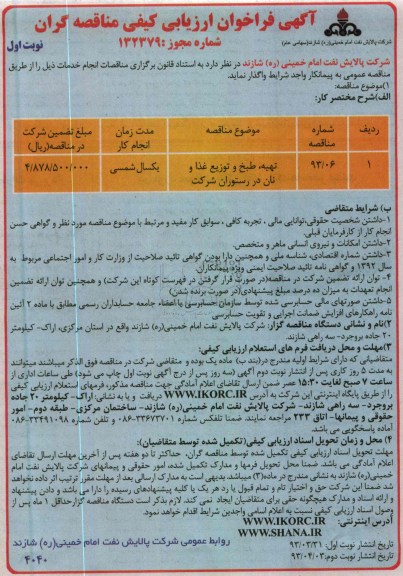 آگهی فراخوان ارزیابی کیفی مناقصه گران
شماره مجوز :۱۳۲۳۷۹
نوبت اول
شرکت پالایش نفت امام خمینی (ره) شازند(سهامی عام)
شرکت پالایش نفت امام خمینی (ره) شازند در نظر دارد به استناد قانون برگزاری مناقصات انجام خدمات ذیل را از طریق
مناقصه عمومی به پیمانکار واجد شرایط واگذار نماید.
۱)موضوع مناقصه:
الف)شرح مختصر کار:
ردیف
شماره مناقصه
موضوع مناقصه
مدت زمان انجام کار
مبلغ تضمین شرکت در مناقصه(ریال)
۱
۹۳/۰۶
تهیه، طبخ و توزیع غذا و نان در رستوران شرکت
یکسال شمسی
۴/۸۷۸/۵۰۰/۰۰۰
ب) شرایط متقاضی
۱-داشتن شخصیت حقوقی،توانایی مالی ، تجربه کافی ، سوابق کار مفید و مرتبط با موضوع مناقصه مورد نظر و گواهی حسن
انجام کار از کارفرمایان قبلی.
۲-داشتن امکانات و نیروی انسانی ماهر و متخصص.
۳-داشتن شماره اقتصادی، شناسه ملی و همچنین دارا بودن گواهی تائید صلاحیت از وزارت کار و امور اجتماعی مربوط به
سال ۱۳۹۲ و گواهی نامه تائید صلاحیت ایمنی ویژه پیمانکاران.
۴- توان ارائه تضمین شرکت در مناقصه(در صورت قرار گرفتن در فهرست کوتاه این شرکت) و همچنین توان ارائه تضمین
انجام تعهدات به میزان ده درصد مبلغ پیشنهادی(در صورت برنده شدن)
۵-داشتن صورتهای مالی حسابرسی شده توسط سازمان حسابرسی یا اعضاء جامعه حسابداران رسمی مطابق با ماده ۲ آئین
نامه راهکارهای افزایش ضمانت اجرایی و تقویت حسابرسی
۲)نام و نشانی دستگاه مناقصه گزار: شرکت پالایش نفت امام خمینی(ره) شازند واقع در استان مرکزی، اراک- کیلومتر
۲۰ جاده بروجرد- سه راهی شازند.
۳)مهلت و محل دریافت فرم های استعلام ارزیابی کیفی:
متقاضیانی که دارای شرایط اولیه مندرج در(بند ب) ماده یک بوده و متقاضی شرکت در مناقصه فوق الذکر میباشند میتوانند
به مدت ۵ روز کاری پس از انتشار نوبت دوم آگهی (سه روز پس از درج آگهی نوبت اول چاپ می شود) طی ساعات اداری از
ساعت ۷ صبح لغایت ۱۵:۳۰ عصر ضمن ارسال تقاضای اعلام آمادگی جهت مناقصه مذکور، فرمهای استعلام ارزیابی کیفی
را از طریق پایگاه اینترنتی این شرکت به آدرس WWW.IKORC.IR دریافت و یا به نشانی :اراک- کیلومتر ۲۰ جاده
بروجرد- سه راهی شازند- شرکت پالایش نفت امام خمینی(ره) شازند- ساختمان مرکزی- طبقه دوم- امور
حقوقی و پیمانها- اتاق ۲۳۳ مراجعه نمایند. ضمنا تلفکس شماره ۳۳۶۷۳۷۰۱-۰۸۶ و تلفن شماره ۳۳۴۹۱۰۹۸-۰۸۶
آماده پاسخگویی می باشد.
۴) محل و زمان تحویل اسناد ارزیابی کیفی(تکمیل شده توسط متقاضیان):
مهلت تحویل اسناد ارزیابی کیفی تکمیل شده توسط مناقصه گران، حداکثر تا دو هفته پس از آخرین مهلت ارسال تقاضای
اعلام آمادگی می باشد. ضمنا محل تحویل فرمها و مدارک تکمیل شده، امور حقوقی و پیمانهای شرکت پالایش نفت امام
خمینی(ره) شازند به نشانی مندرج در ماده(۳) میباشد بدیهی است به مدارک ارسالی بعد از مهلت مقرر ترتیب اثر داده نخواهد
شد ضمنا این شرکت حق و اختیار تام و تمام قبول یا رد هر یک یا کلیه پیشنهادهای رسیده را دارا می باشد و دادن پیشنهاد
و ارائه اسناد و مدارک هیچگونه حقی برای متقاضیان ایجاد نمی کند. لازم بذکر است دستگاه مناقصه گزار حداقل ۱ ماه پس از
وصول اسناد ارزیابی کیفی نسبت به اعلام اسامی واجدین شرایط اقدام خواهد نمود.
آدرس اینترنتی:
WWW.IKORC.IR
WWW.SHANA.IR
تاریخ انتشار نوبت اول: ۹۳/۰۳/۳۱
تاریخ انتشار نوبت دوم:۹۳/۰۴/۰۳
روابط عمومی شرکت پالایش نفت امام خمینی(ره) شازند
۴۰۴۰